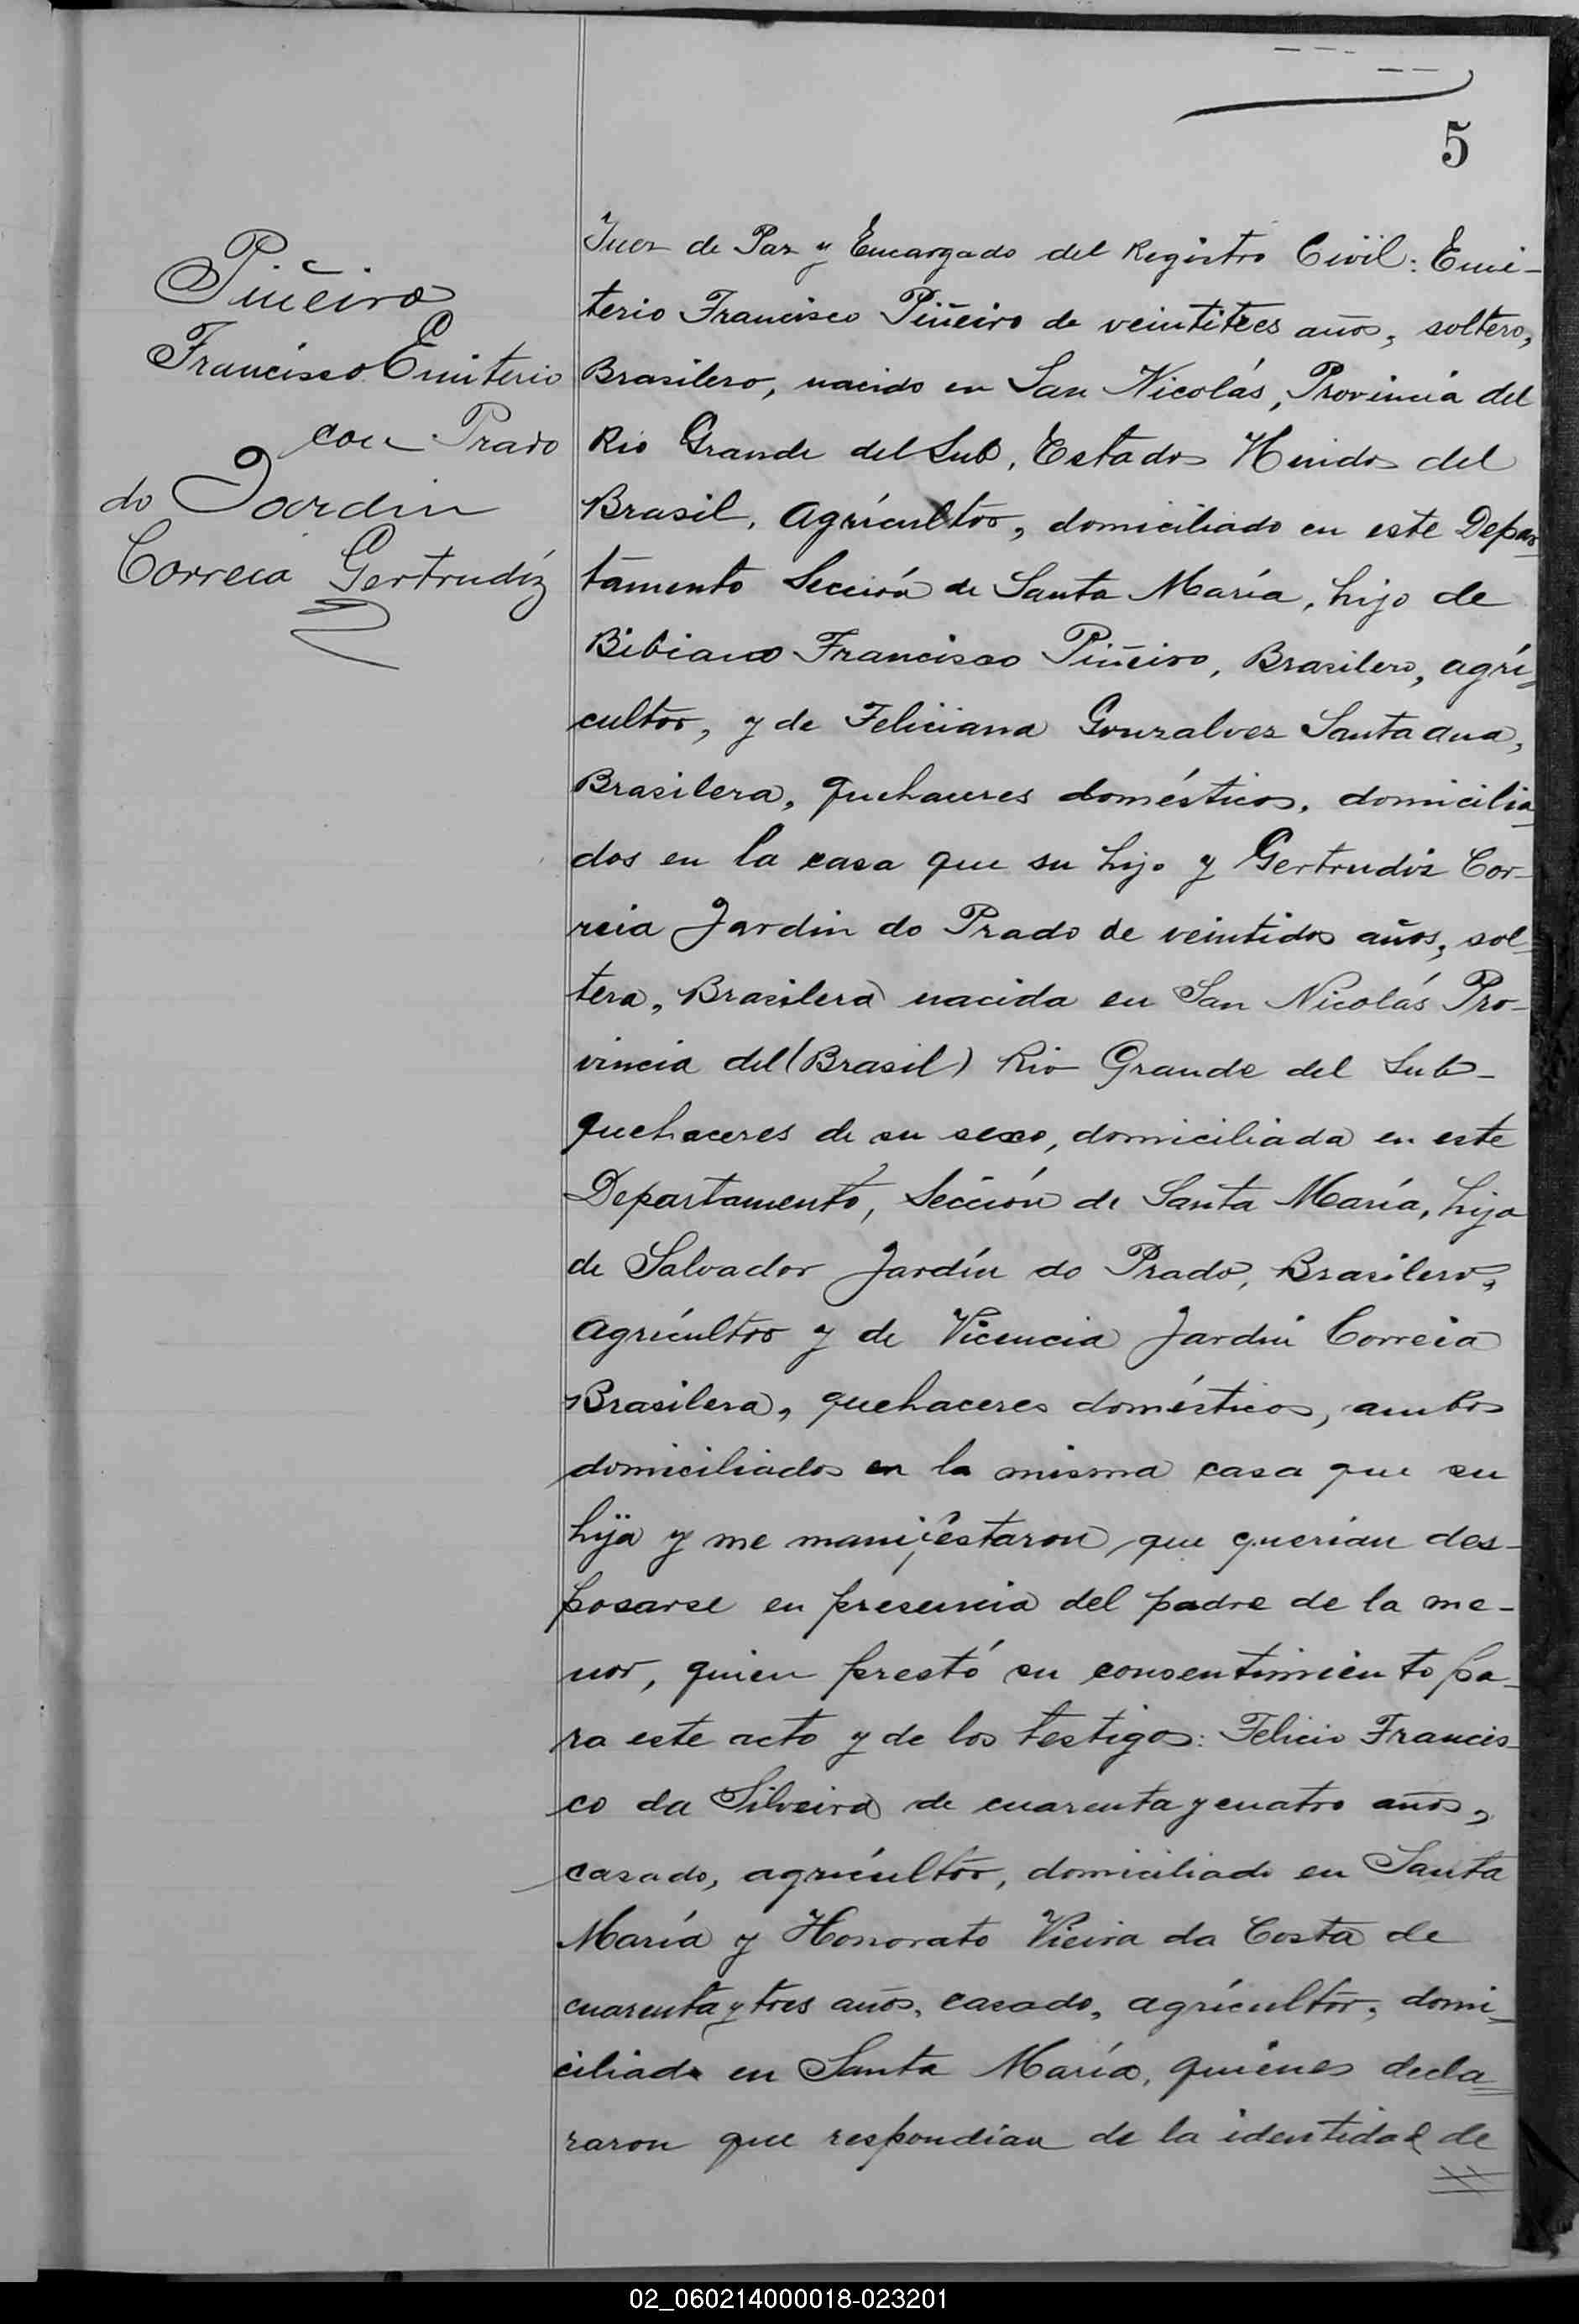 5
Piñeiro
Francisco Emiterio
con Prado
do Jardin
Correia Gertrudiz
Juez de Paz y Encargado del Registro Civil: Emi-
terio Francisco Piñeiro de veintitres años, soltero,
Brasilero, nacido en San Nicolás, Provincia del
Rio Grande del Sub, Estados Unidos del
Brasil, agrícultor, domiciliado en este Depar-
tamento Sección de Santa María, hijo de
Bibiano Francisco Piñeiro, Brasilero, agrí-
cultor, y de Feliciana Gonzalvez Santa ana,
Brasilera, quehaceres domésticos, domicilia-
dos en la casa que su hijo y Gertrudiz Cor-
reia Jardin do Prado de veintidos años, sol-
tera, Brasilera nacida en San Nicolás Pro-
vincia del (Brasil) Rio Grande del Sub-
quehaceres de su sexo, domiciliada en este
Departamento, Sección de Santa María, hija
de Salvador Jardín do Prado, Brasilero,
agrícultor y de Vicencia Jardin Correia
Brasilera, quehaceres domésticos, ambos
domiciliados en la misma casa que su
hija y me manifestaron que querían des-
posarse en presencia del padre de la me-
nor, quien prestó su consentimiento pa-
ra este acto y de los testigos: Felicio Francis-
co da Silveira de cuarenta y cuatro años,
casado, agrícultor, domiciliado en Santa
María y Honorato Vieira da Costa de
cuarenta y tres años, casado, agrícultor, domi-
ciliado en Santa María, quienes decla-
raron que respondían de la identidad de
02_060214000018-023201